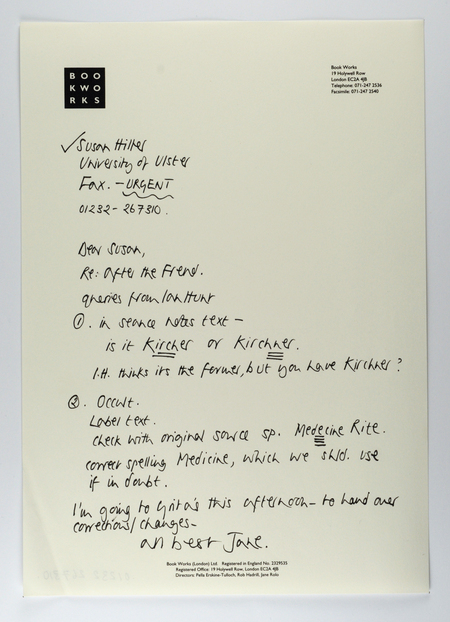 BOO
KWO
RKS
Book Works
19 Holywell Row
London EC2A 4JB
Telephone: 071-247 2536
Facsimile: 071-247 2540
✓ Susan Hiller
University of Ulster
Fax. – URGENT
01232 - 267310.
Dear Susan,
Re: After the Freud.
queries from Ian Hunt
①. in seance notes text –
is it Kircher or Kirchner.
I.H. thinks its the former, but you have Kirchner?
②. Occult.
Label text.
check with original source sp. Medecine Rite.
correct spelling Medicine, which we shld. use
if in doubt.
I'm going to this afternoon – to hand over
corrections/changes –
all best Jane.
Book Works (London) Ltd. Registered in England No. 2239535
Registered Office: 19 Holywell Row, London EC2A 4JB
Directors: Pella Erskine-Tulloch, Rob Hadrill, Jane Rolo